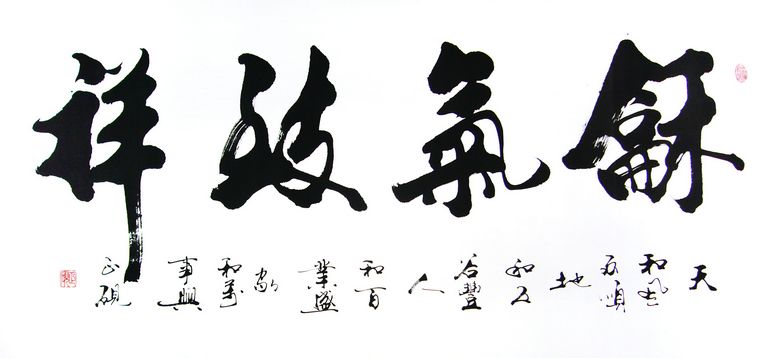 龢氣致祥
天
和風
雨順
地
和五
谷豐
人
和百
業盛
家
和萬
事興
硯